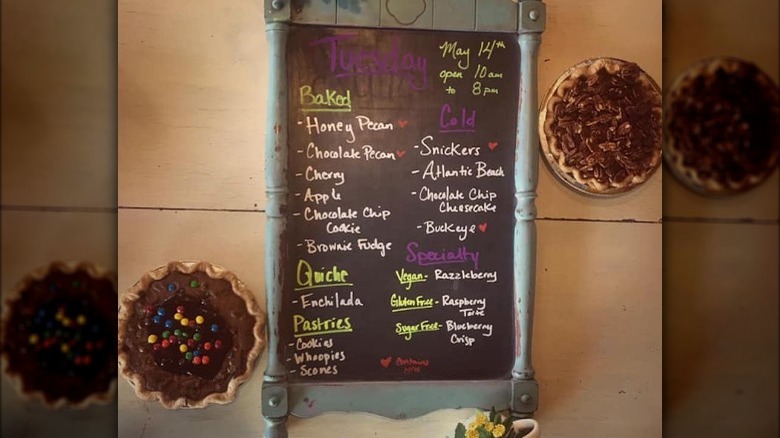 Tuesday
May 14th
open 10am
to 8pm
Baked
- Honey Pecan ♥
- Chocolate Pecan ♥
- Cherry
- Apple
- Chocolate Chip
Cookie
- Brownie Fudge
Quiche
- Enchilada
Pastries
- Cookies
- Whoopies
- Scones
Cold
- Snickers ♥
- Atlantic Beach
- Chocolate Chip
Cheesecake
- Buckeye ♥
Specialty
Vegan - Razzleberry
Gluten Free - Raspberry
Torte
Sugar Free - Blueberry
Crisp
♥ Contains
nuts